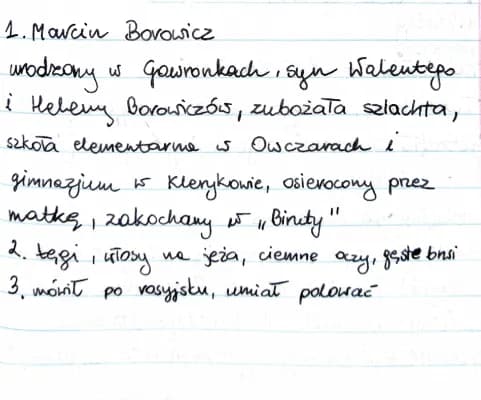 1. Marcin Borowicz
urodzony w Gawronkach, syn Walentego
i Heleny Borowiczów, zubożała szlachta,
szkoła elementarna w Owczarach i
gimnazjum w Klerykowie, osierocony przez
matkę, zakochany w „Biruty"
2. tęgi, włosy na jeża, ciemne oczy, gęste brwi
3. mówił po rosyjsku, umiał polować